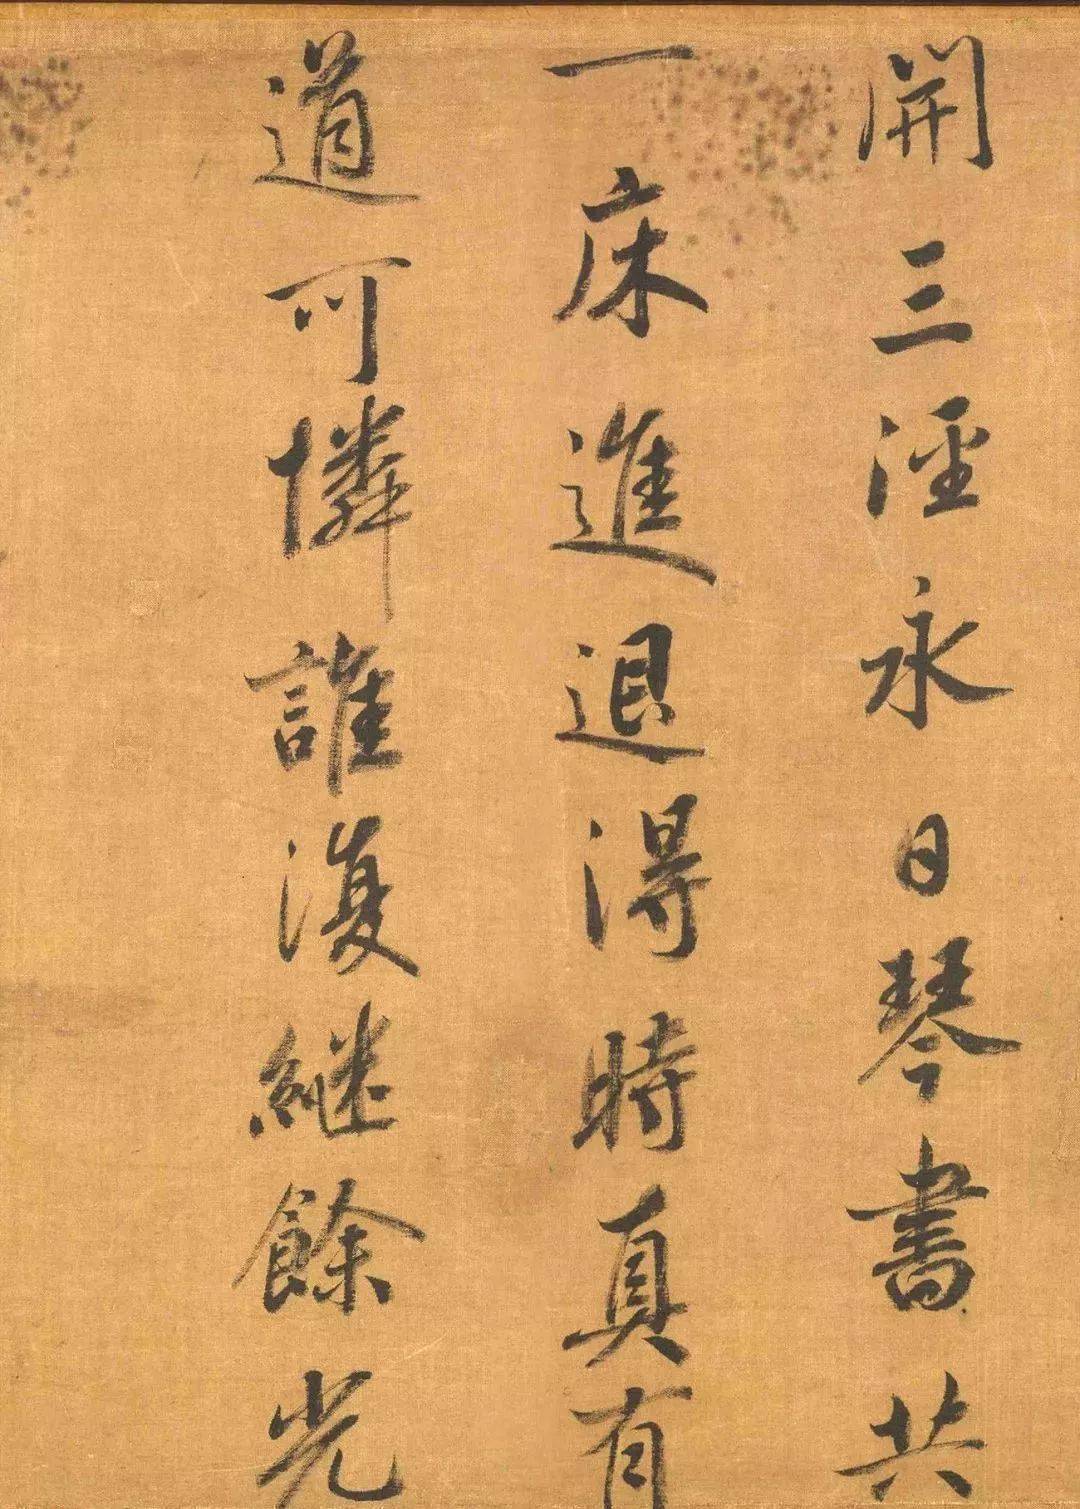 開三涇永日琴書共
一床進退得時真有
道可憐誰復継餘光